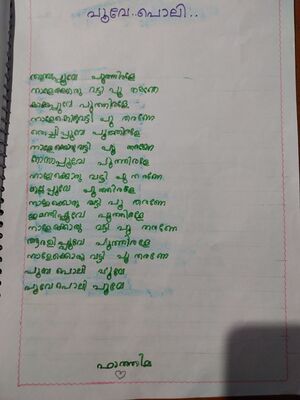 പൂവേ..പൊലി..
തുമ്പപ്പൂവേ പൂത്തിരളേ
നാളേക്കൊരു വട്ടി പൂ തരണേ
കാക്കപ്പൂവേ പൂത്തിരളേ
നാളേക്കൊരുവട്ടി പൂ തരണേ
തെച്ചിപ്പൂവേ പൂത്തിരളേ
നാളേക്കൊരു വട്ടി പൂ തരണേ
പൂത്തിരളേ
നാളേക്കൊരു വട്ടി പൂ തരണേ
മുല്ലപ്പൂവേ പൂത്തിരളേ
നാളേക്കൊരു വട്ടി പൂ തരണേ
ജമന്തിപ്പൂവേ പൂത്തിരളേ
നാളേക്കൊരു വട്ടി പൂ തരണേ
അരളിപ്പൂവേ പൂത്തിരളേ
നാളേക്കൊരു വട്ടി പൂ തരണേ
പൂവേ പൊലി പൂവേ
പൂവേ പൊലി പൂവേ
ഫാത്തിമ